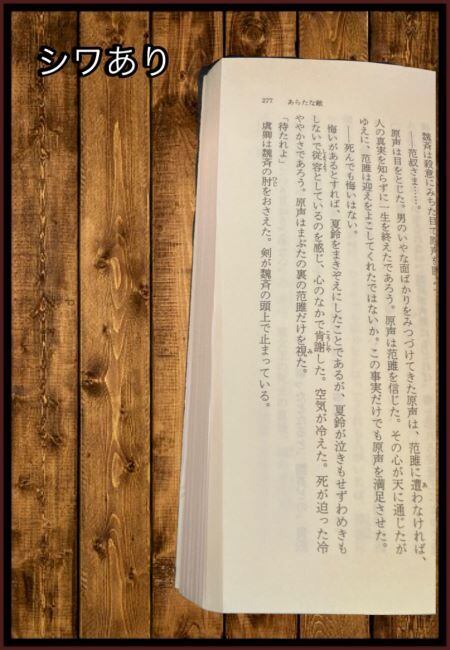 シワあり
277 あらたな敵
魏斉は殺意にみちた目で原声を
――范叔さま……。
原声は目をとじた。男のいやな面ばかりをみつづけてきた原声は、范雎に遭わなければ、
人の真実を知らずに一生を終えたであろう。原声は范雎を信じた。その心が天に通じたが
ゆえに、范雎は迎えをよこしてくれたではないか。この事実だけでも原声を満足させた。
――死んでも悔いはない。
悔いがあるとすれば、夏鈴をまきぞえにしたことであるが、夏鈴が泣きもせずわめきも
しないで従容としているのを感じ、心のなかで肯謝した。空気が冷えた。死が迫った冷
ややかさであろう。原声はまぶたの裏の范雎だけを視た。
「待たれよ」
虞卿は魏斉の肘をおさえた。剣が魏斉の頭上で止まっている。